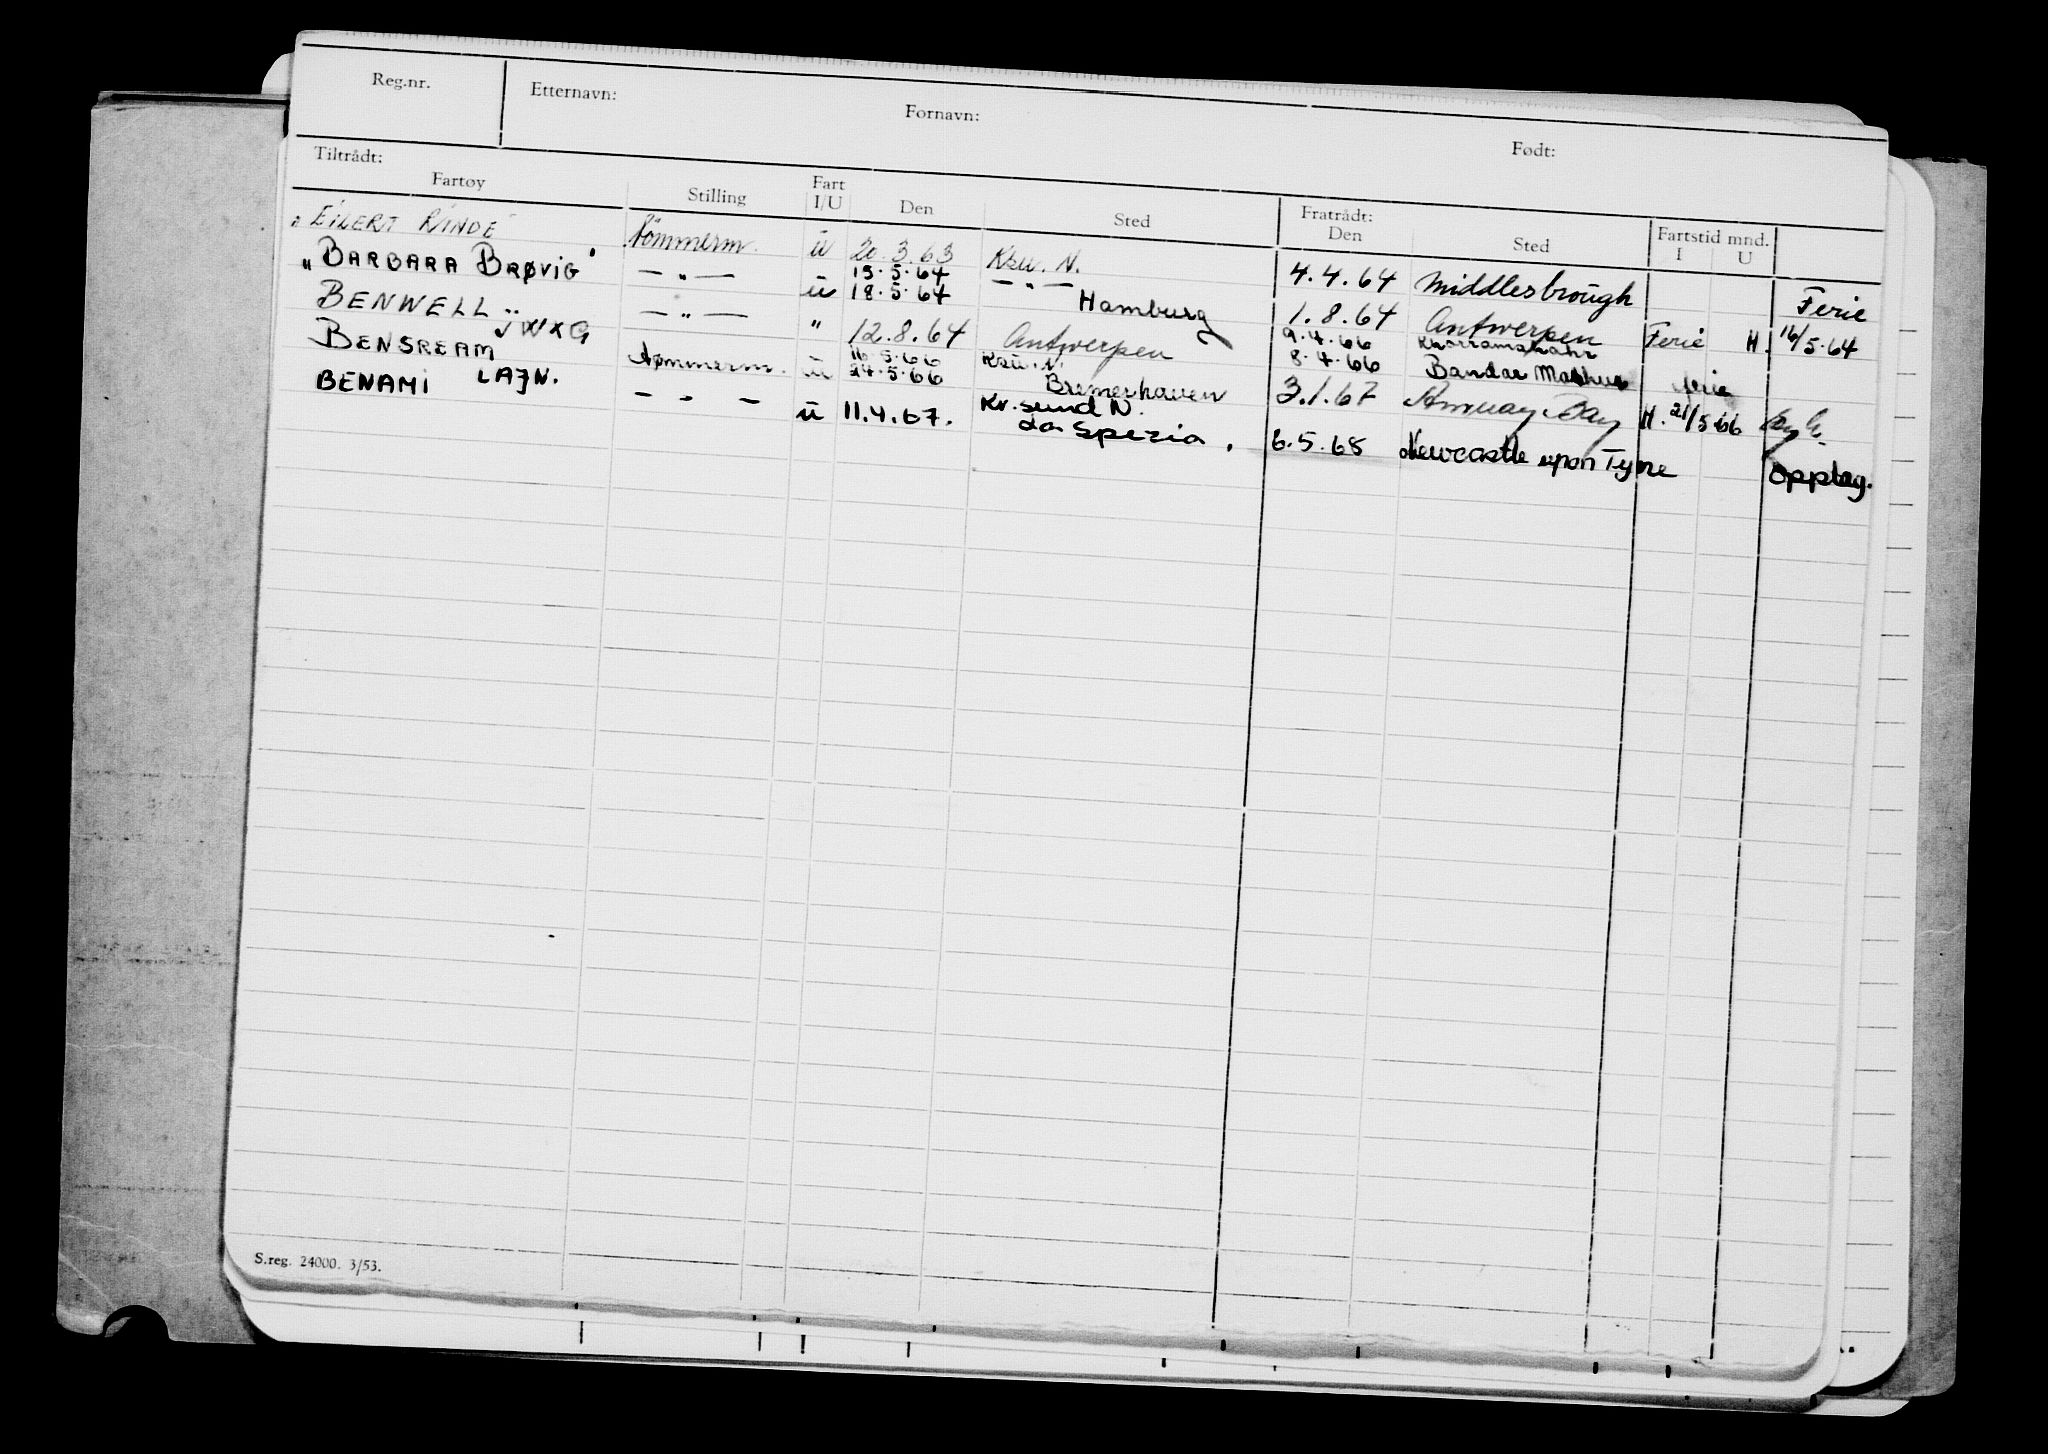 Reg.nr. Etternavn: Fornavn: Født:
Tiltrådt: Fratrådt: Fartstid mnd.
Fartøy Stilling Fart I/U Den Sted Den Sted I U
„ EILERT RINDE Tömmerm. ü 20.3.63 Ksu. N. 4.4.64 Middlesbrough Ferie
„ BARBARA BRØVIG" — „ — ü 15.5.64 — „ —
18.5.64 Hamburg 1.8.64 Antwerpen Ferie H. 16/5.64
BENWELL JWXG — „ — „ 12.8.64 Antwerpen 9.4.66 Khorramshahr
8.4.66 Bandar Ferie
BENSREAM LAJN. Tømmerm. ü 16.5.66 Ksu. N.
24.5.66 Bremerhaven 3.1.67 Amuay Bay H. 21/5 66
BENAMI — „ — ü 11.4.67. Kr.sund N.
La Spezia. 6.5.68 Newcastle upon Tyne Opplag.
S.reg. 24000. 3/53.